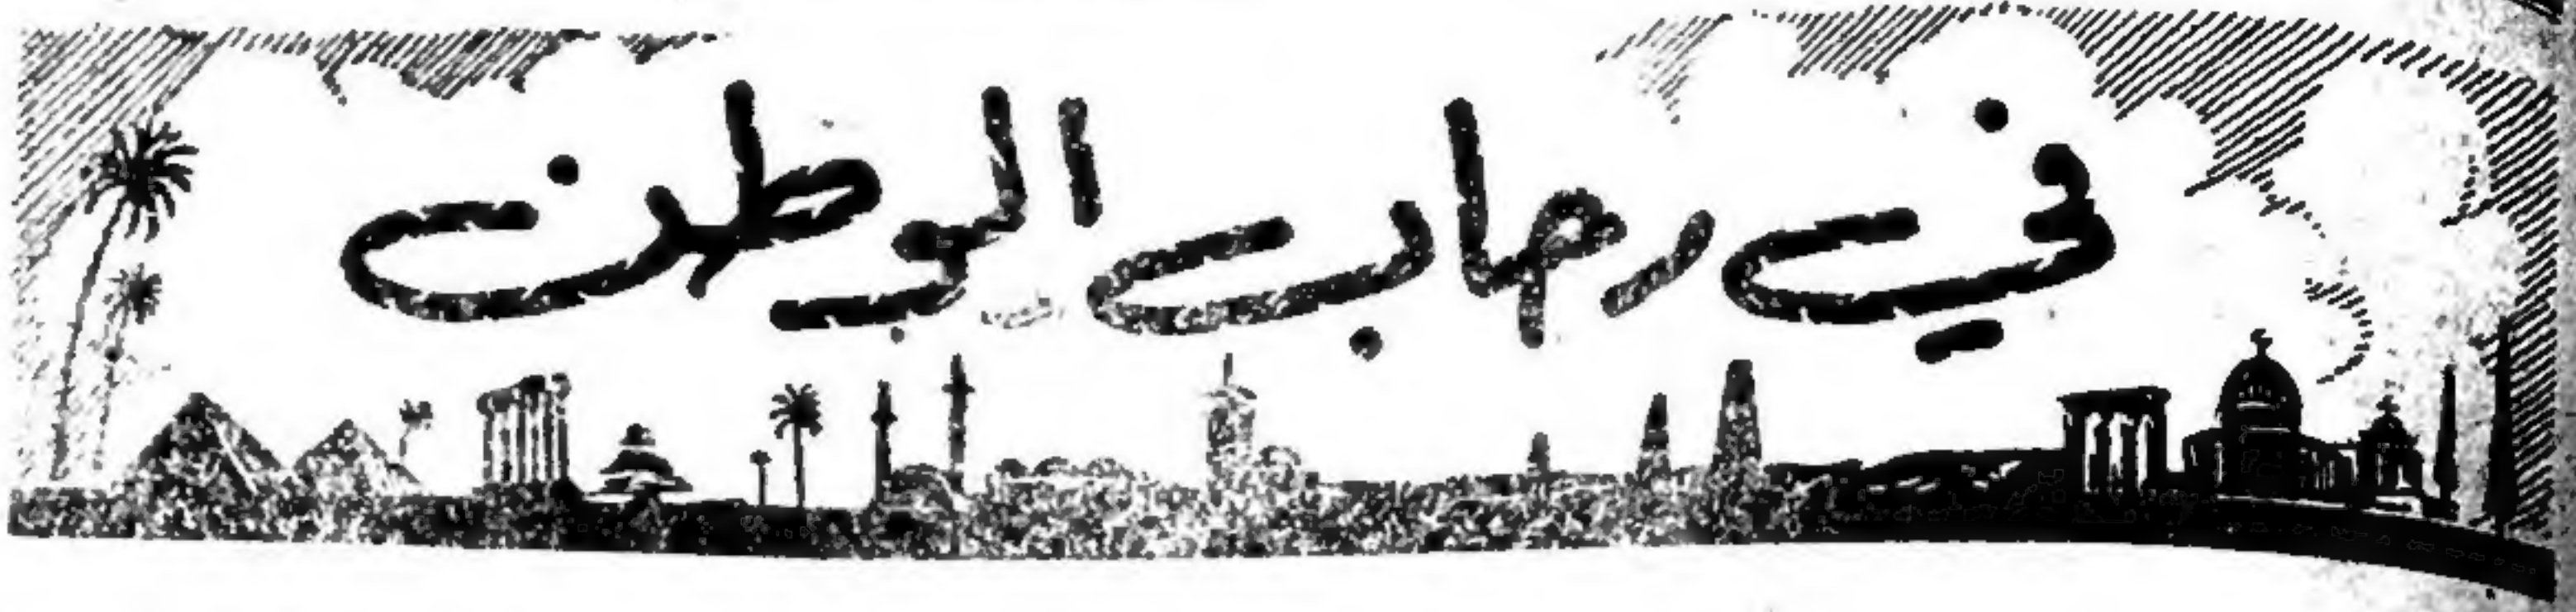 في رحاب الوطن